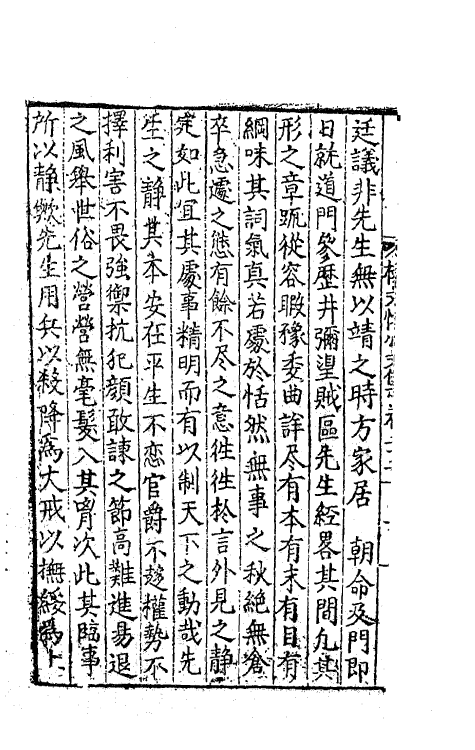 廷議非先生無以靖之時方家居　朝命及門即
日就道門參歷井彌望賊區先生經畧其間凢其
形之章䟽從容暇豫委曲詳尽有本有末有目有
綱味其詞氣真若處於恬然無事之秋絶無倉
卒急遽之態有餘不尽之意徃徃於言外見之静
定如此宜其處事精明而有以制天下之動哉先
生之静其本安在平生不恋官爵不趍權勢不
擇利害不畏強禦抗犯顔敢諫之節高難進昜退
之風舉世俗之營營無毫髮入其胷次此其臨事
所以静歟先生用兵以殺降爲大戒以撫綏爲上